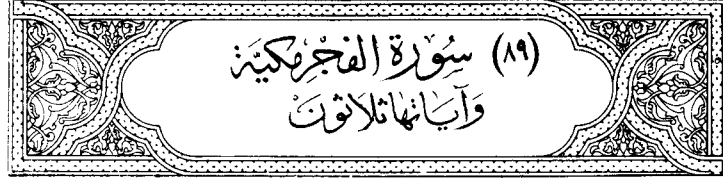 (٨٩) سُورَةُ الفَجْرِ مَكِيَّة
وَآيَاتُهَا ثَلَاثُونَ